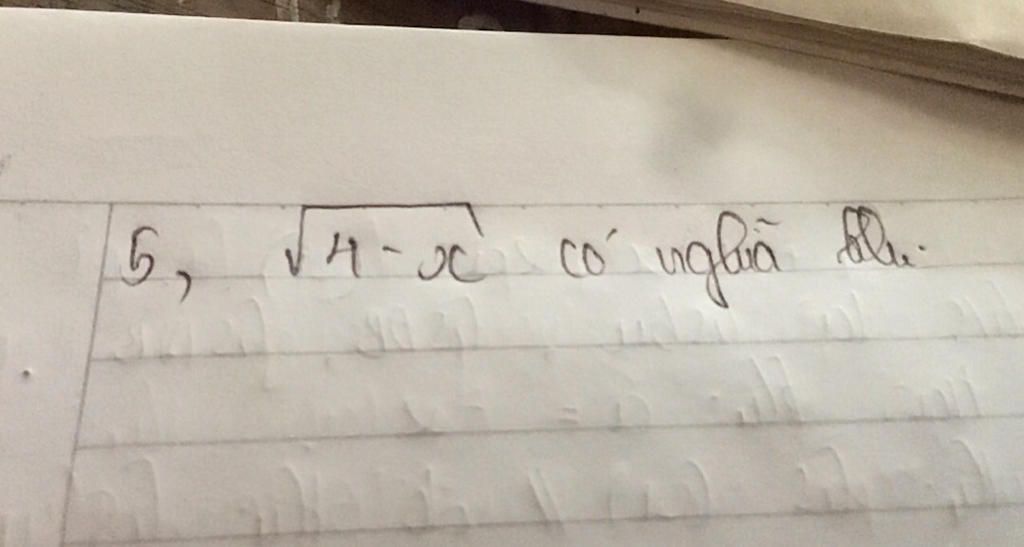 5, √4-x có nghĩa khi.